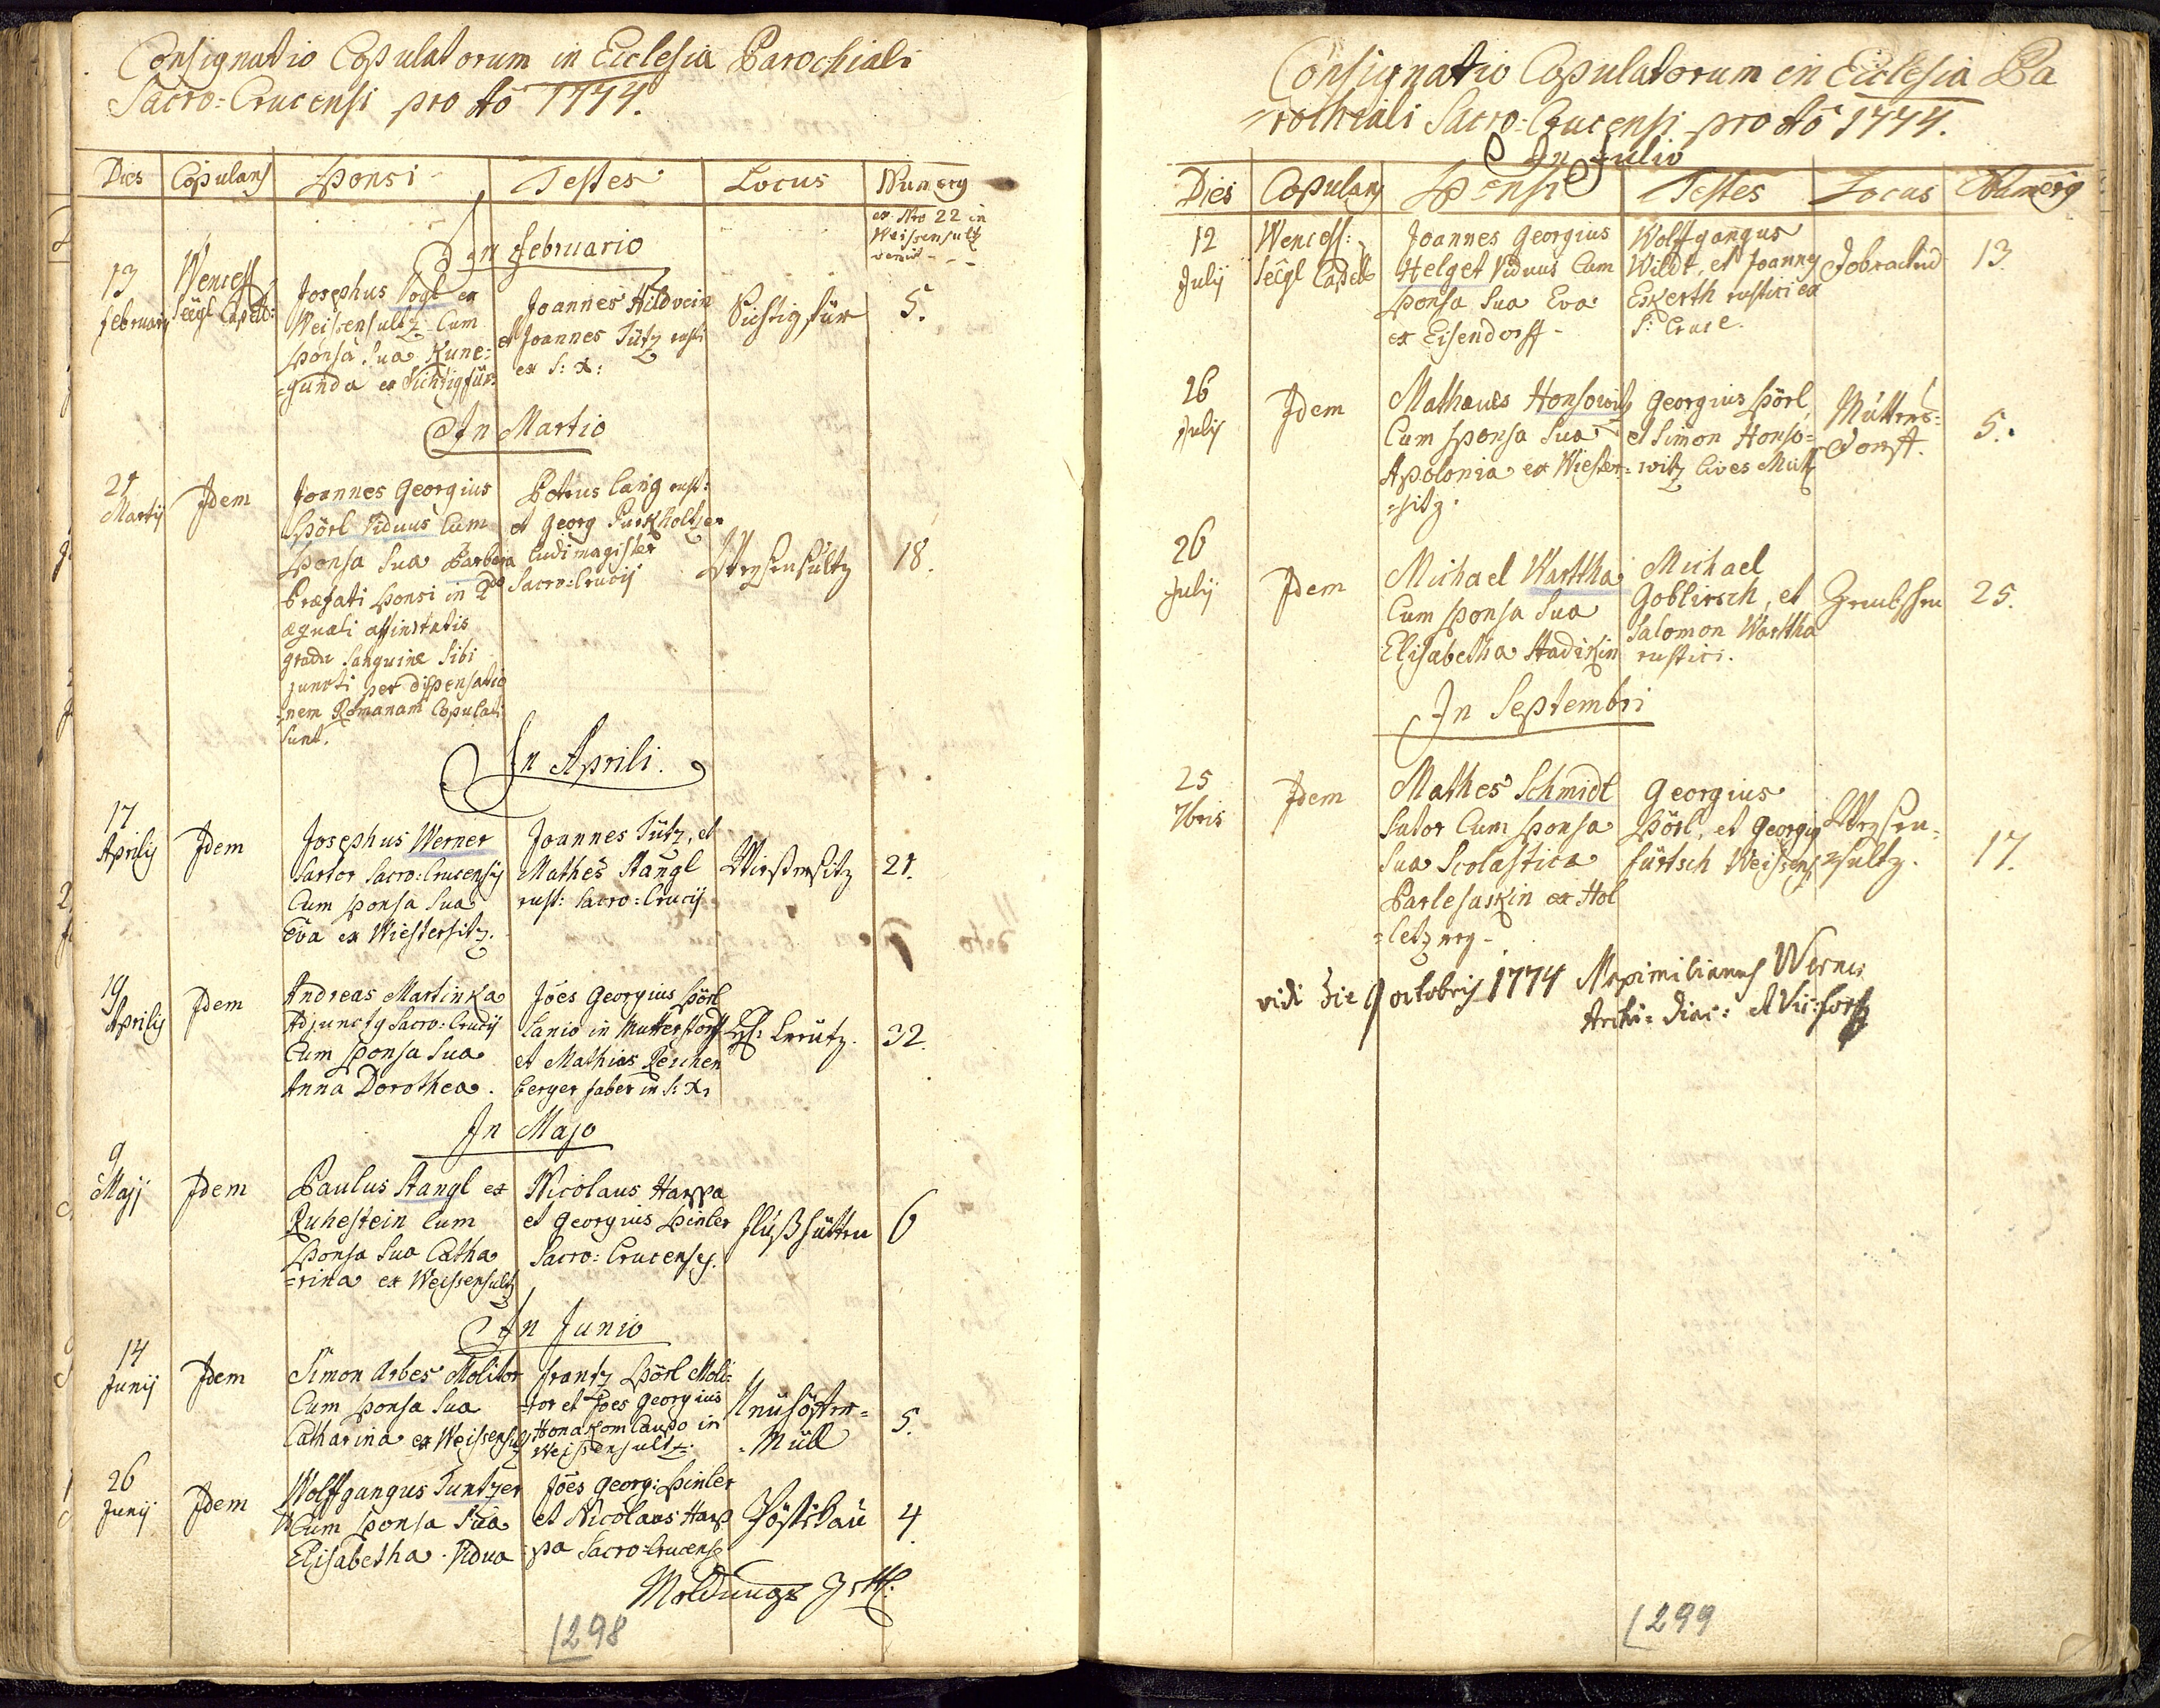 Consignatio Copulatorum in Ecclesia Parochiali
Sacro=Crucensi pro Ao 1774.
Dies Copulans Sponsi Testes Locus Numerg
ex Nro 22 in
Weissensultz
venit - - -
In Februario
13
february
Wencesl
Seegl Capell:
Josephus Vogl ex
Weissensultz Cum
Sponsa Sua Kune=
=gunda ex
Joannes Hildwein
et Joannes Tütz rusti
ex S: X:
5.
In Martio
21
Martij
Idem
Joannes Georgius
Spörl Viduus Cum
Sponsa Sua Barbara
Præfati Sponsi in 2do
æquali affinitatis
gradu Sanguine Sibi
juncti per dispensatio
=nem Romanam Copulati
Sunt.
Petrus Lang rust:
et Georg Purkholtzer
Ludimagister
Sacro=Crucij
Weysensultz
18.
In Aprili.
17
Aprilis
Idem
Josephus Werner
Sartor Sacro=Crucensis
Cum Sponsa Sua
Eva ex Wiestersitz.
Joannes Tütz, et
Mathes Stangl
rust: Sacro=Crucij
21.
19
Aprilis
Idem
Andreas Martinka
Adjunctg Sacro=Crucij
Cum Sponsa Sua
Anna Dorothea.
Joes Georgius Spörl
Lanio in Muttersdorff
et Mathias Reichen
berger faber in S: X:
32.
In Majo
9
Maij
Idem
Paulus Stangl ex
Ruhestein Cum
Sponsa Sua Catha
=rina ex Weissensultz
Nicolaus Harppa
et Georgius Spinler
Sacro=Crucensg.
flüßhütten
6
In Junio
14
Junij
Idem
Simon Arbes Molitor
Cum Sponsa Sua
Catharina ex Weissensultz
frantz Spörl Moli=
=tor et Joes Georgius
Honakom Caupo in
Weissensultz.
=Müll
5.
26
Junij
Idem
Wolffgangus Tuntzer
Cum Sponsa Sua
Elisabetha Vidua
Joes Georg: Spinler
et Nicolaus Harp
pa Sacro=Crucens
4.
298
Consignatio Copulatorum in Ecclesia Pa
rochiali Sacro=Crucensi pro Ao 1774.
In Julio
Dies Copulans Sponsi Testes Locus Numerg
12
July
Wencesl:
Seegl Capell
Joannes Georgius
Helget Viduus Cum
Sponsa Sua Eva
ex Eisendorff -
Wolffgangus
Wildt, et Joannes
Eckerth rustici ex
S: Cruce.
13.
26
July
Idem
Mathaues Honsowitz
Cum Sponsa Sua
Apolonia ex Wiester=
=sitz.
Georgius Spörl,
et Simon Honso=
witz Cives Mutt
Mutters=
dorff.
5.
26
July
Idem
Michael Warttha
Cum Sponsa Sua
Elisabetha Stadikin
Michael
Goblirsch, et
Salomon Warttha
rustici.
25.
In Septembri
25
7bris
Idem
Mathes Schmidt
Sutor Cum Sponsa
Sua Scolastica
Parlesaskin ex Hol
=letzreg -
Georgius
Spörl, et Georgig
fürtsch Weissens
Weysen=
sultz.
17.
vidi die 9 octobris 1774 Maximilianus Werner
Archi=Diac: et Vic: for
299